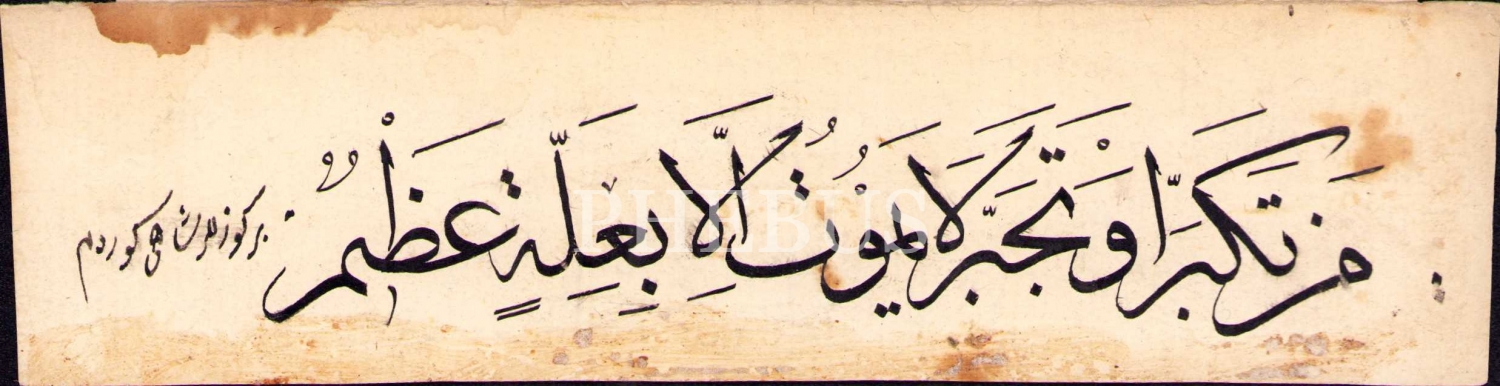 مَنْ تَكَبَّرَ اَوْ تَجَبَّرَ لَا يَمُوْتُ اِلَّا بِعِلَّةٍ عَظْمٌ
بر كوز كوردم
PHEBUS